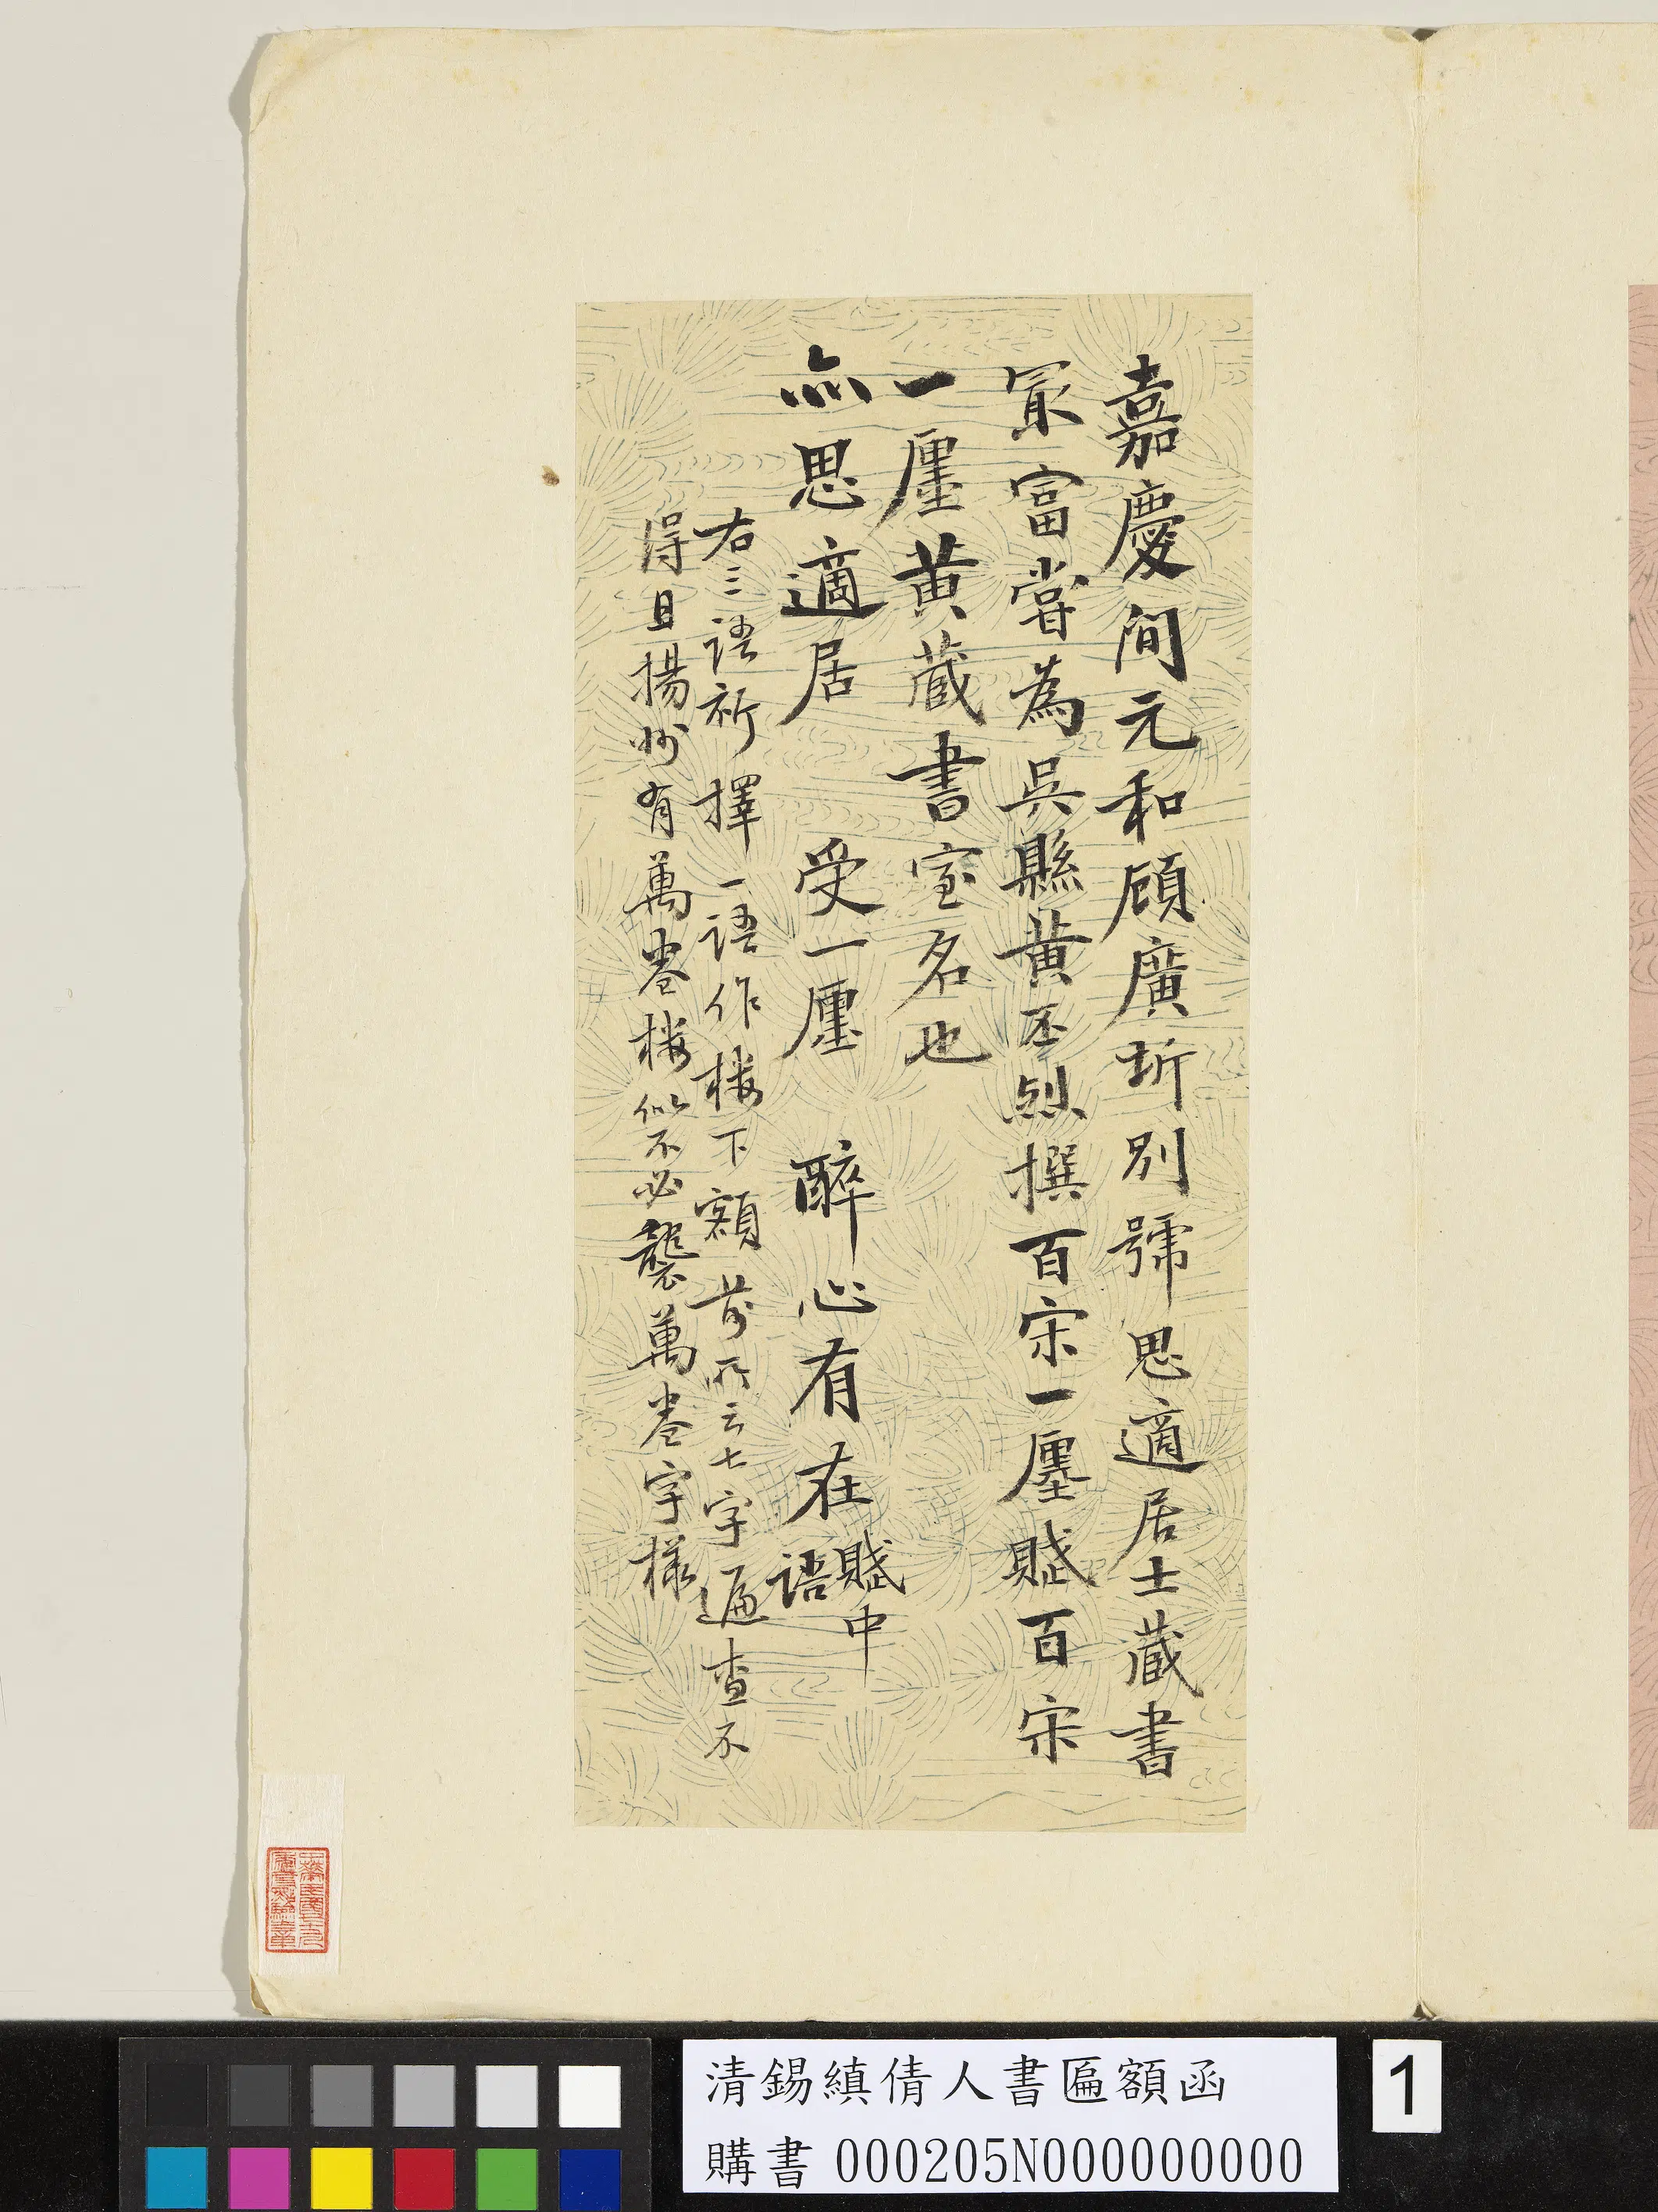 嘉慶間元和顧廣圻別號思適居士藏書
冣富嘗為吳縣黃丕烈撰百宋一廛賦百宋
一廛黃藏書室名也
亦思適居 受一廛 醉心有在賦中語
右三語祈擇一語作樓下額前所云七字遍查不
得且揚州有萬卷樓似不必襲萬卷字樣
清錫縝倩人書匾額函
購書 000205N000000000
1